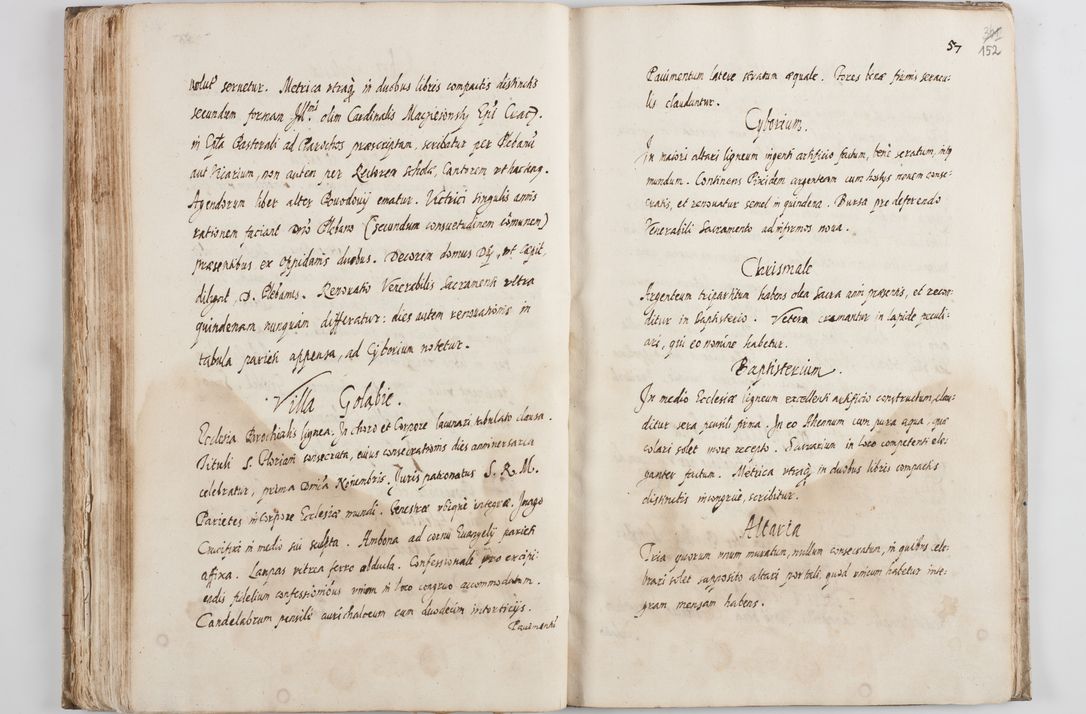 seruetur. Metrica vtraq; in duobus libris compactis distinctis
secundum formam Illmi. olim Cardinalis Macieiowsky Epi Crac:
in Epla Pastorali ad Parochos praescriptam, scribatur per Plebanū
aut Vicarium, non autem per Rectorem scholae, Cantorem vt hactenq.
Agendorum liber alter Powodowij ematur. Victrici singulis annis
rationem faciant Dno Plebano (secundum consuetudinem cōmunem)
praesentibus ex Oppidanis duobus. Decorem domus Dei, vt caepit,
diligat, D. Plebanus. Renouatio Venerabilis Sacramenti vltra
quindenam nunquam differatur: dies autem renouationis in
tabula parieti appensa, ad Cyborium notetur.
Villa Golabie.
Ecclesia Parochialis lignea. In choro et Corpore laqueari tabulato clausa.
Tituli S. Floriani consecrata, cuius consecrationis dies anniuersaria
celebratur, prima Dnica Nouembris. Iuris patronatus S. R. M.
Parietes in Corpore Ecclesiae mundi. Fenestrae vbique integrae. Imago
Crucifixi in medio sui sculpta. Ambona ad cornu Euangelij parieti
afixa. Lampas vitrea ferro Confessionale pro excipi-
endis fidelium confessionibus vnum in loco congruo accommodatum.
Candelabrum pensile aurichalceum cum duodecim intorticijs.
Pauimentū
57
361
152
Pauimentum latere stratum aequale. Fores benae firmis seracu-
lis clauduntur.
Cyborium.
In maiori altari ligneum ingenti artificio factum, bene seratum, intq
mundum. Continens Pixidem argenteam cum hostys nouem conse-
cratis, et renouatur semel in quindena. Bursa pro deferendo
Venerabili Sacramento ad infirmos noua.
Chrismale
Argenteum tripartitum habens olea Sacra anni praesentis, et recon-
ditur in Baptisterio. Vetera cremantur in lapide peculi-
ari, qui eo nomine habetur.
Baptisterium.
In medio Ecclesiae ligneum excellenti artificio constructum, clau-
ditur sera pensili firma. In eo Ahenum cum pura aqua, quae
colari solet more recepto. Sacrarium in loco competenti ele-
ganter factum. Metrica vtraq; in duobus libris compactis
distinctis incongrue, scribitur.
Altaria
Tria quorum vnum muratum, nullum consecratum, in quibus cele-
brari solet supposito altari portali, quod vnicum habetur inte-
gram mensam habens.